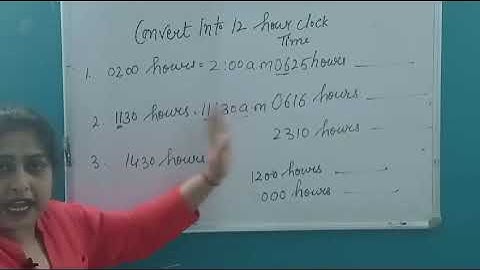 Convert Into 12 hour clock
Time
1. 0200 hours = 2:00a.m 0625 hours
2. 1130 hours. 11:30am 0616 hours
2310 hours
3. 1430 hours
1200 hours
000 hours